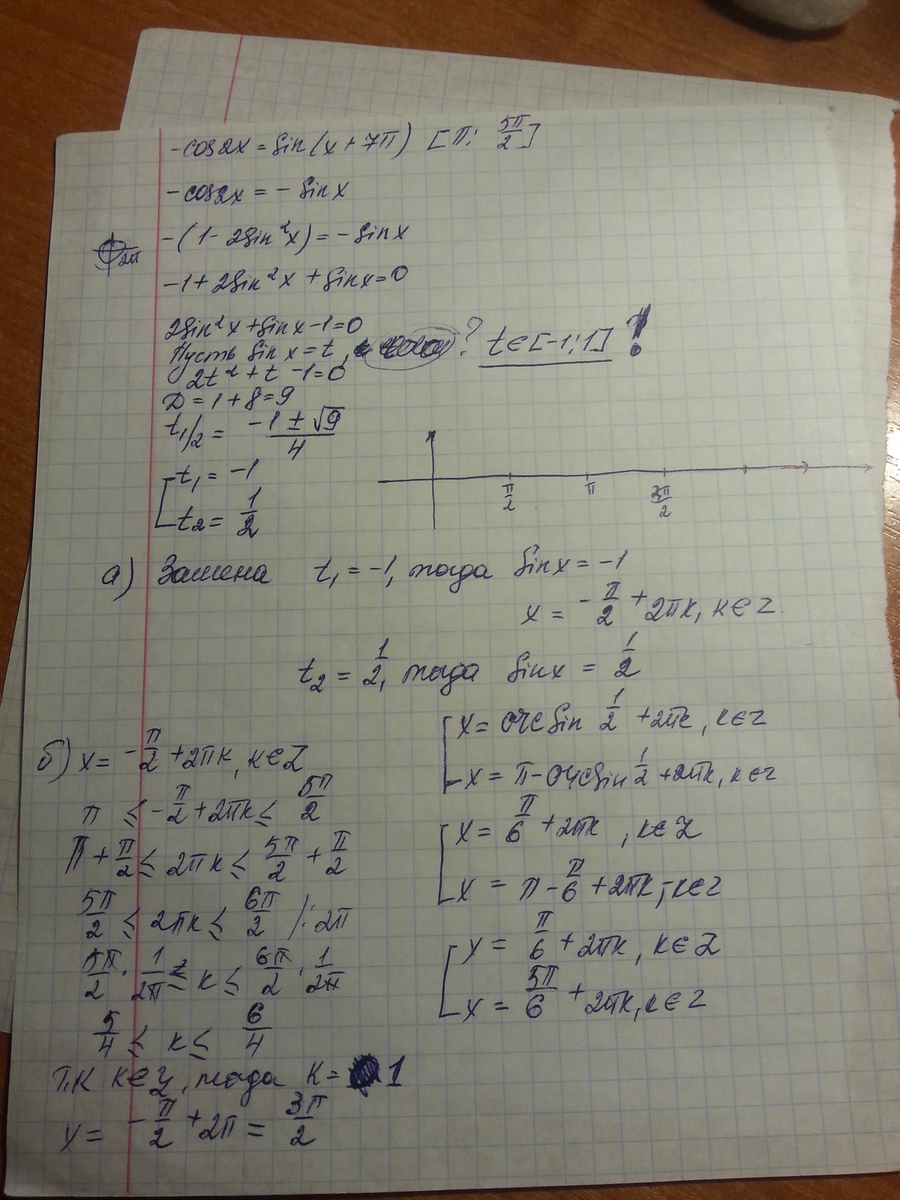 -cos2x = sin(x + 7π) [π; 5π/2]
-cos2x = - sinx
-(1 - 2sin²x) = - sinx
2π
-1 + 2sin²x + sinx = 0
2sin²x + sinx - 1 = 0
Пусть sinx = t, ? t ∈ [-1; 1] !
2t² + t - 1 = 0
D = 1 + 8 = 9
t1/2 = (-1 ± √9)/4
t₁ = -1
t₂ = 1/2
π/2 π 3π/2
а) Замена t₁ = -1, тогда sinx = -1
x = -π/2 + 2πk, k ∈ z
t₂ = 1/2, тогда sinx = 1/2
x = arcsin 1/2 + 2πk, k ∈ z
x = π - arcsin 1/2 + 2πk, k ∈ z
x = π/6 + 2πk, k ∈ z
x = π - π/6 + 2πk, k ∈ z
x = π/6 + 2πk, k ∈ z
x = 5π/6 + 2πk, k ∈ z
б) x = -π/2 + 2πk, k ∈ z
π ≤ -π/2 + 2πk ≤ 5π/2
π + π/2 ≤ 2πk ≤ 5π/2 + π/2
5π/2 ≤ 2πk ≤ 6π/2 /: 2π
5π/2 · 1/2π ≤ k ≤ 6π/2 · 1/2π
5/4 ≤ k ≤ 6/4
т.к k ∈ z, тогда k = 1
x = -π/2 + 2π = 3π/2